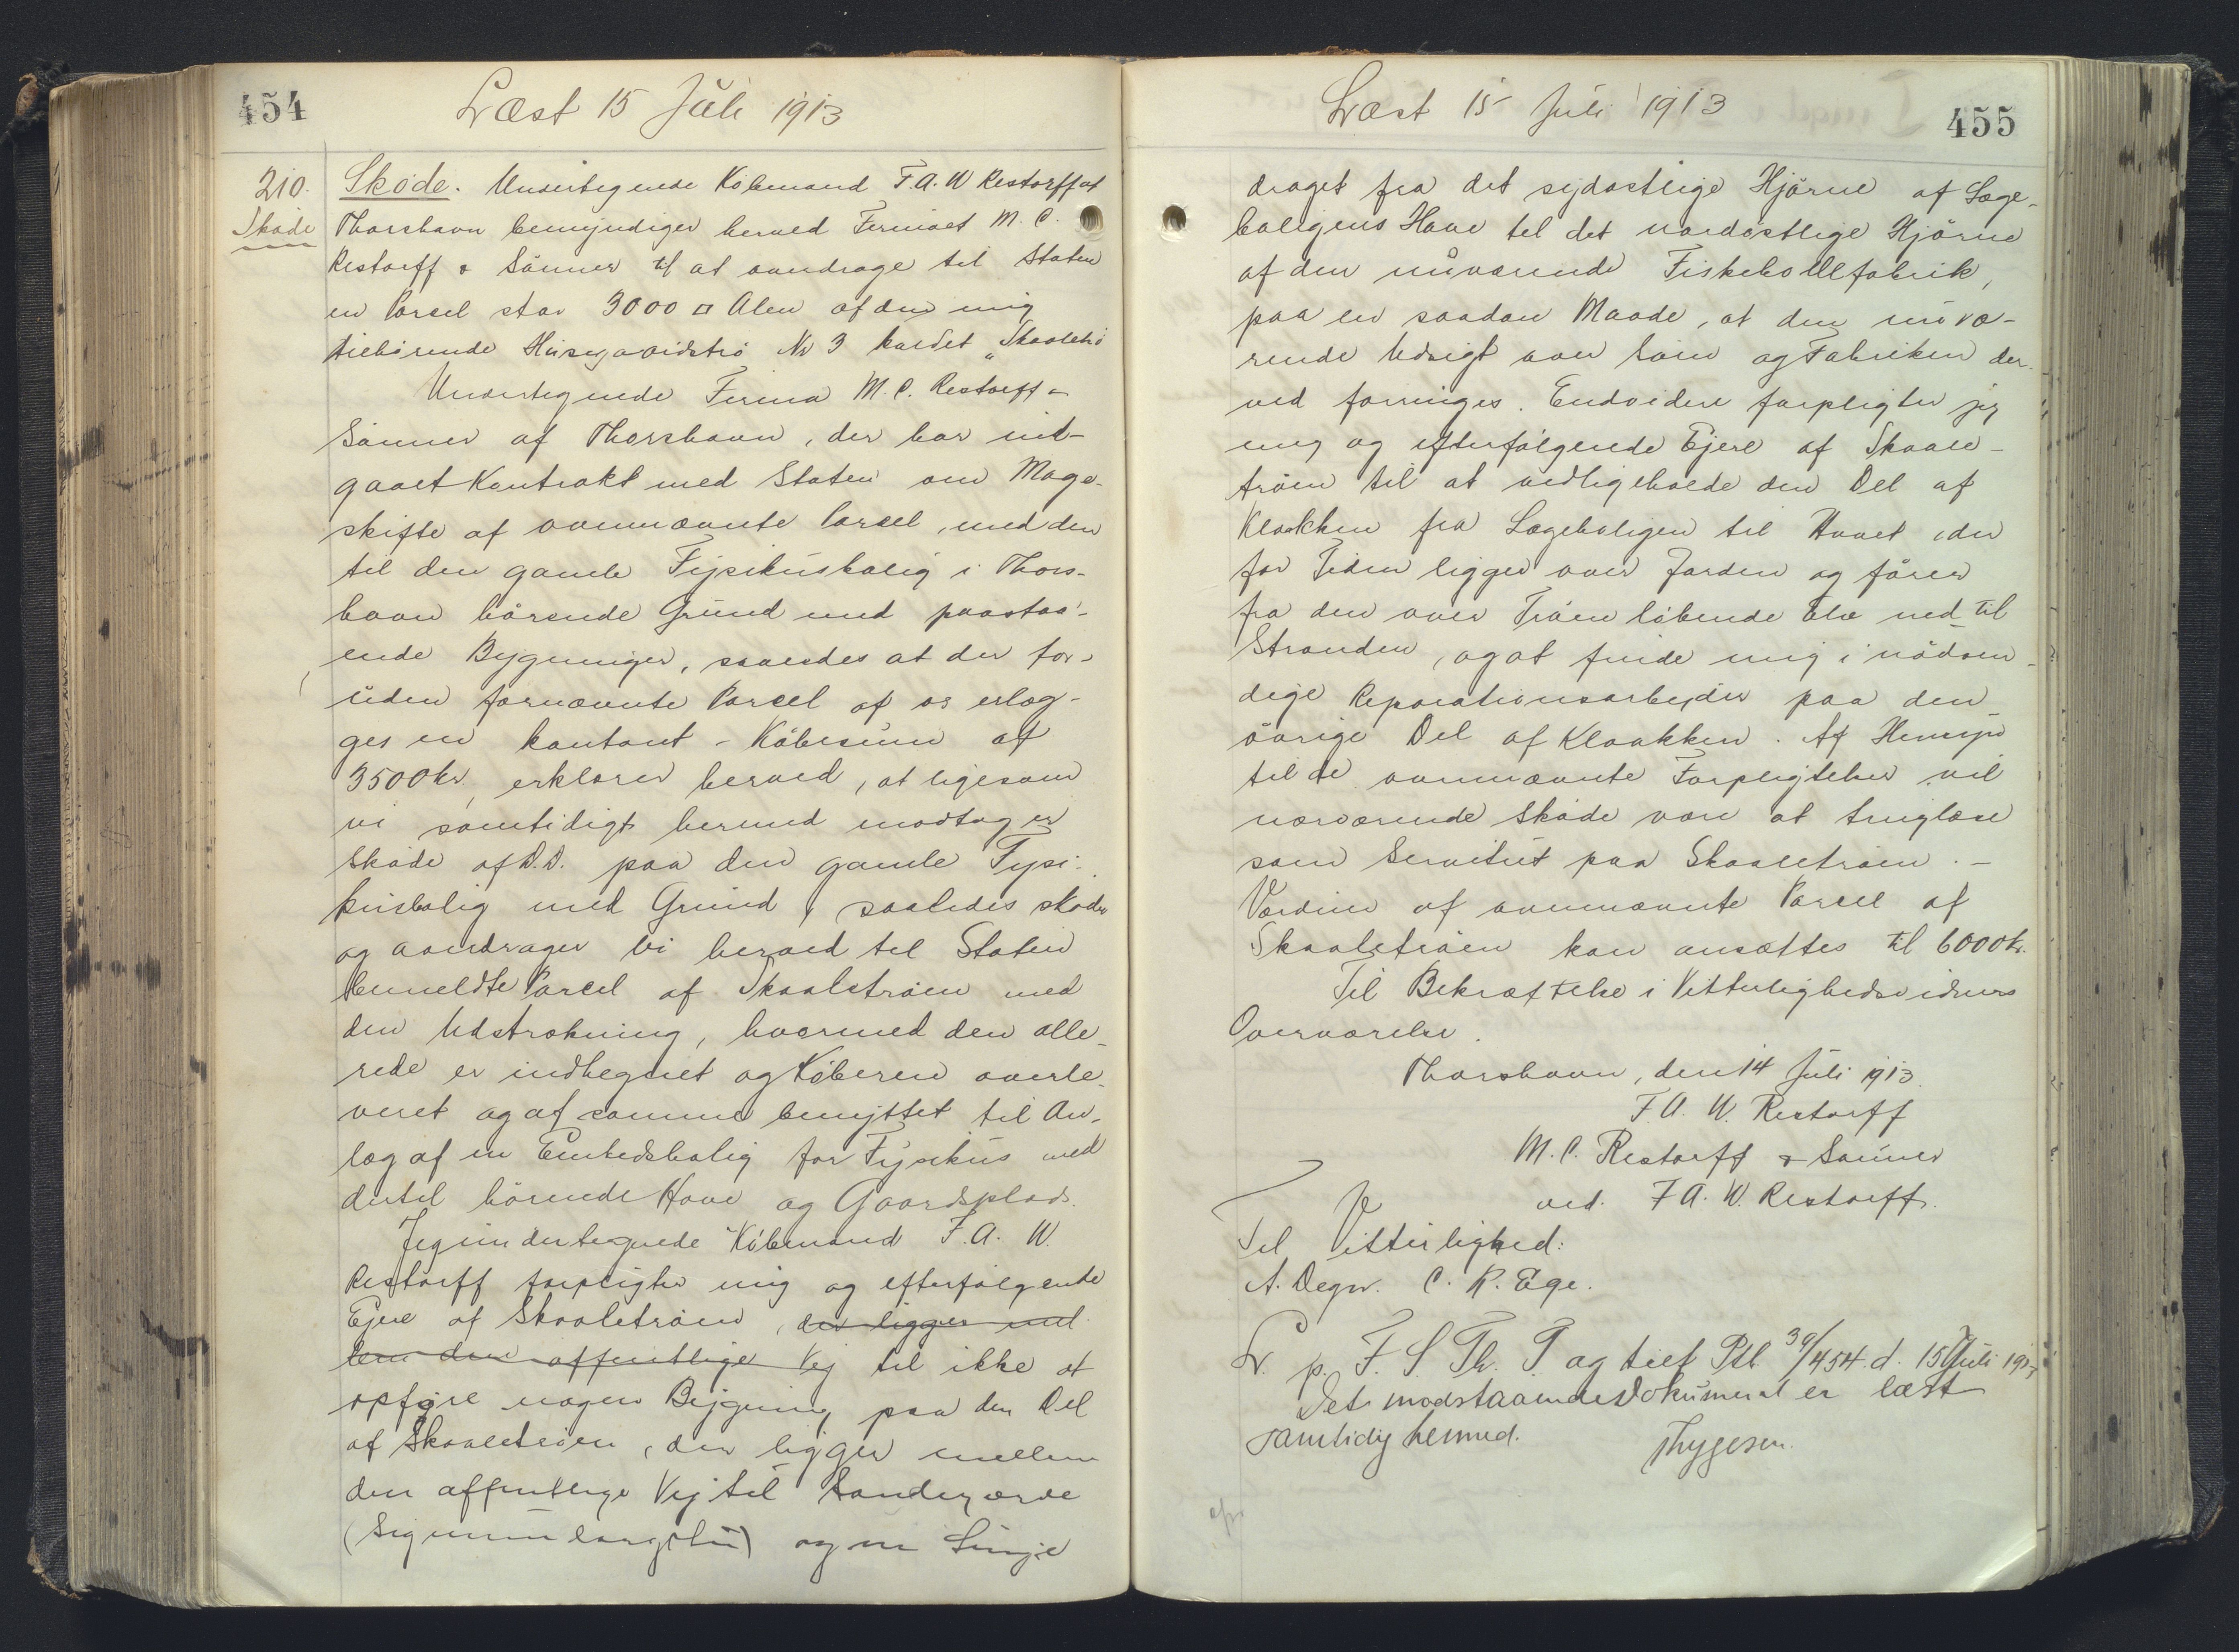 454
Læst 15 Juli 1913
210. Skøde. Undertegnede Købmand F.A.W Restorff af
Skøde Thorshavn bemyndiger herved Firmaet M. C.
Restorff & Sönner til at overdrage til Staten
en Parcel stor 3000 □ Alen af den mig
tilhörende Húsagavidstrø No 3 kaldet "Skaaletrö
Undertegnede Firma M. C. Restorff &
Sönner af Thorshavn, der har ind-
gaaet Kontrakt med Staten om Mage-
skifte af ovennævnte Parcel, med den
til den gamle Fysikusbolig i Thors-
havn hörende Grund med paastaa-
ende Bygninger, saaledes at der for-
uden fornævnte Parcel af os erlæg-
ges en kontant-Köbesum af
3500 kr., erklærer herved, at ligesom
vi samtidigt hermed modtager
Skøde af D.D. paa den gamle Fysi-
kusbolig med Grund, saaledes skøder
og overdrager vi herved til Staten
bemeldte Parcel af Skaaletröen med
den Udstrækning, hvormed den alle-
rede er indhegnet og Köberen overle-
veret og af samme benyttet til An-
læg af en Embedsbolig for Fysikus med
dertil hörende Have og Gaardsplads.
Jeg undertegnede Købmand F. A. W.
Restorff forpligter mig og efterfölgende
Ejere af Skaaletröen, der ligger mel
lem den offentlige Vej til ikke at
opföre nogen Bygning paa den Del
af Skaaletröen, der ligger mellem
den offentlige Vej til Sandegærde
og en Linje
Læst 15 Juli 1913
455
draget fra det sydöstlige Hjörne af Læge-
boligens Have til det nordöstlige Hjörne
af den nuværende Fiskebollefabrik,
paa en saadan Maade, at den nuvæ-
rende Udsigt over Söen og Fabriken der-
ved forringes. Endvidere forpligter jeg
mig og efterfölgende Ejere af Skaale-
tröen til at vedligeholde den Del af
Kloakken fra Lægeboligen til Havet, der
for Tiden ligger over Jorden og förer
fra den over Tröen löbende Elv ned til
Stranden, og at finde mig i nödven-
dige Reparationsarbejder paa den
övrige Del af Kloakken. Af Hensyn
til de ovennævnte Forpligtelser vil
nærværende Skøde være at tinglæse
som Servitut paa Skaaletröen. -
Værdien af ovennævnte Parcel af
Skaaletröen kan ansættes til 6000 kr.
Til Bekræftelse i Vitterlighedsvidners
Overværelse.
Thorshavn, den 14 Juli 1913.
F. A. W. Restorff
M. C. Restorff & Sönner
ved. F. A. W. Restorff.
Til Vitterlighed:
A. Degn. C. R. Ege.
L. p. F. S. Th. T. og tilf Ptl 39/454. d. 15 Juli 1913
Det modstaaende Dokument er læst
samtidig hermed. Thygesen.